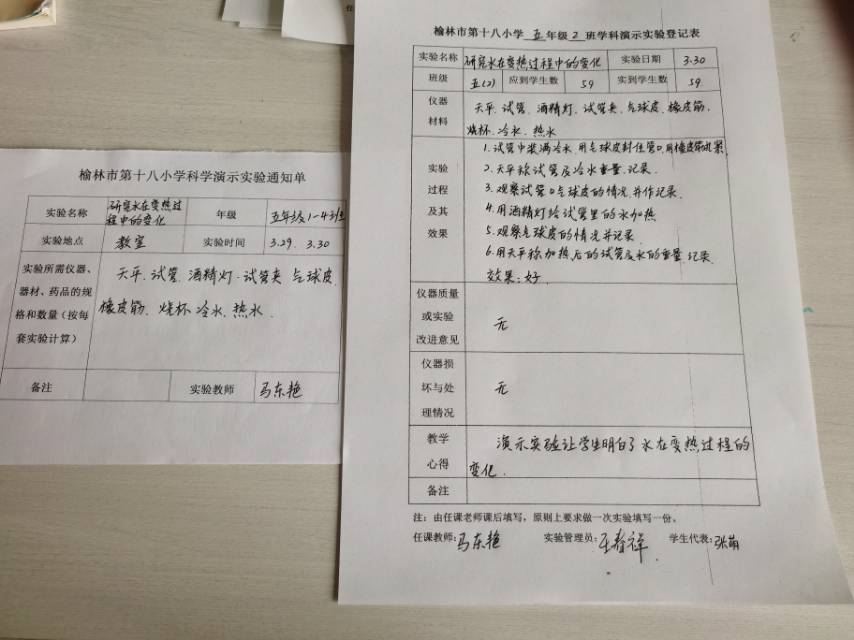 榆林市第十八小学科学演示实验通知单
实验名称 研究水在变热过程中的变化 年级 五年级1-4班
实验地点 教室 实验时间 3.29. 3.30
实验所需仪器、器材、药品的规格和数量(按每套实验计算) 天平.试管.酒精灯.试管夹.气球皮.
橡皮筋.烧杯.冷水.热水.
备注 实验教师 马东艳
榆林市第十八小学 五 年级 2 班学科演示实验登记表
实验名称 研究水在变热过程中的变化 实验日期 3.30
班级 五(2) 应到学生数 59 实到学生数 59.
仪器材料 天平.试管.酒精灯.试管夹.气球皮.橡皮筋.
烧杯.冷水.热水
实验过程及其效果
1.试管中装满冷水.用气球皮封住管口.用橡皮筋
2.天平称试管及冷水重量.记录.
3.观察试管口气球皮的情况.并作记录.
4.用酒精灯给试管里的水加热
5.观察气球皮的情况并记录.
6.用天平称加热后的试管及水的重量 记录.
效果:好.
仪器质量或实验改进意见 无
仪器损坏与处理情况 无
教学心得 演示实验让学生明白了水在变热过程的
变化.
备注
注:由任课老师课后填写,原则上要求做一次实验填写一份。
任课教师:马东艳 实验管理员:王春祥 学生代表:张萌